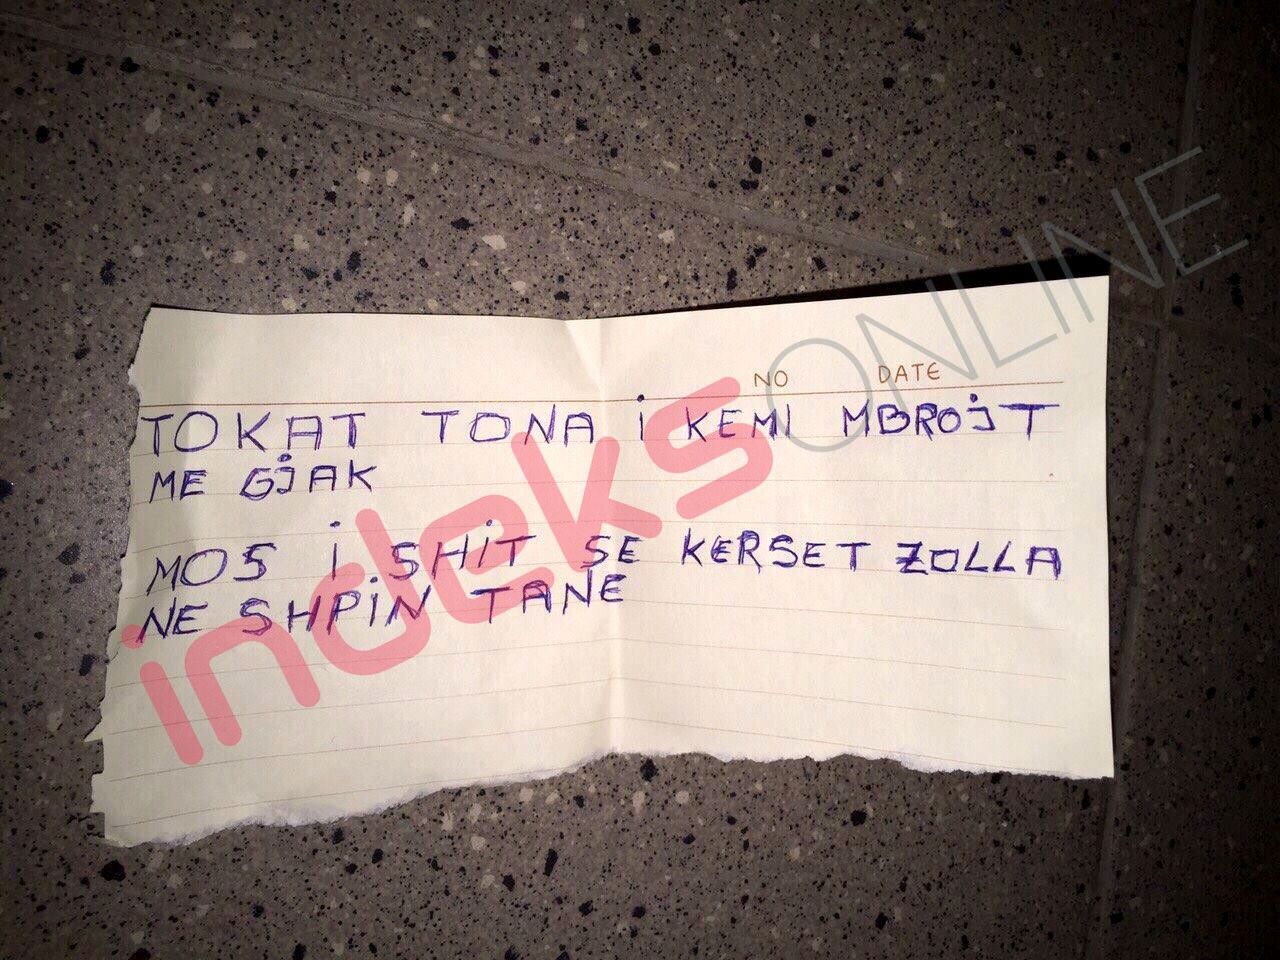 NO DATE
TOKAT TONA i KEMI MBROjT
ME GjAK
MOS i SHiT SE KERSET ZOLLA
NE SHPiN TANE
indeksONLINE